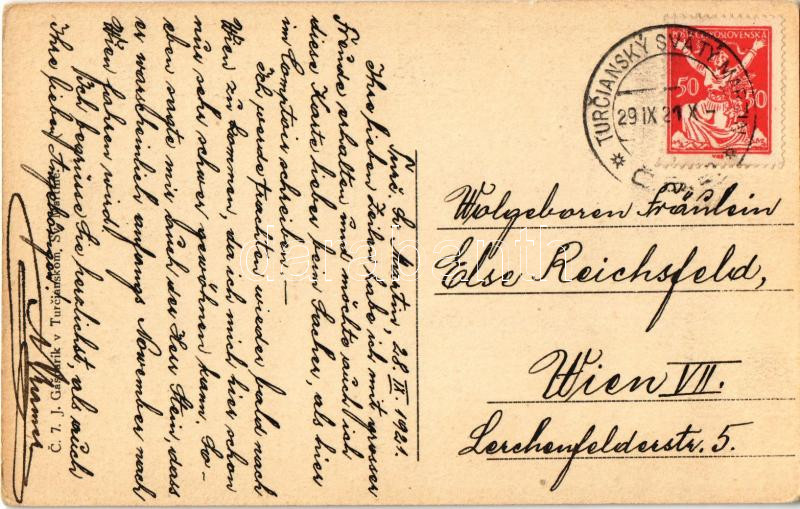 Turč. S. Martin, 28. IX. 1921.
Ihre lieben Zeilen habe ich mit grosser
Freude erhalten und möchte auch ich
diese Karte lieber beim Sacher, als hier
im Comptoir schreiben. —
Ich werde trachten wieder bald nach
Wien zu kommen, da ich mich hier schon
nur sehr schwer gewöhnen kann. So-
eben sagte mir auch der Herr Stein, dass
er warscheinlich anfangs November nach
Wien fahren wird.
Ich begrüsse Sie herzlichst, als auch
Ihre lieben Angehörigen.
Č. 7. J. Gašparík v Turčianskom, Sv. Martine.
POŠTA ČESKOSLOVENSKÁ
50 50
TURČIANSKÝ SVÄTÝ MARTIN
29 IX 21 X - 7
Wolgeboren Fräulein
Else Reichsfeld,
Wien VII.
Lerchenfelderstr. 5.
darabanth